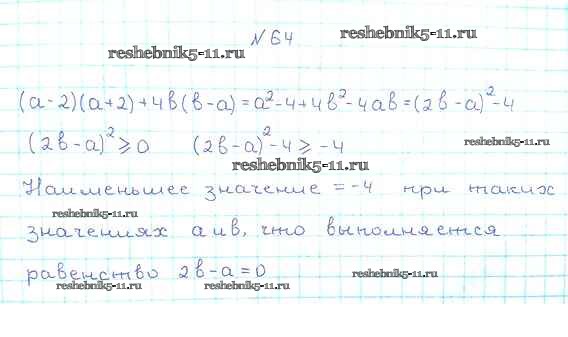 № 64
reshebnik5-11.ru
reshebnik5-11.ru
(а-2)(а+2)+4в(в-а)=а²-4+4в²-4ав=(2в-а)²-4
(2в-а)²⩾0 (2в-а)²-4⩾-4
reshebnik5-11.ru
reshebnik5-11.ru
Наименьшее значение =-4 при таких
reshebnik5-11.ru
значениях а и в, что выполняется
равенство 2в-а=0
reshebnik5-11.ru
reshebnik5-11.ru
reshebnik5-11.ru